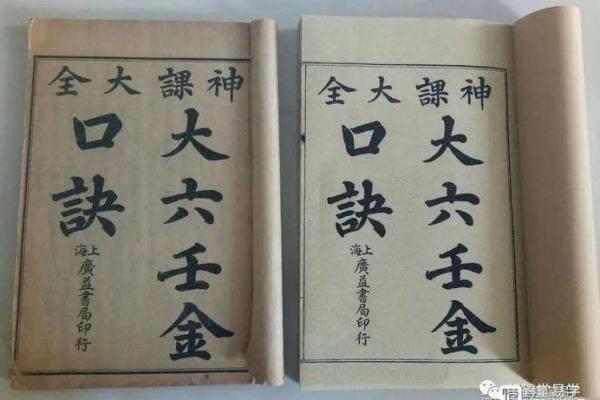 神課大全
大六壬金
口訣
上海
廣益書局印行
神課大全
大六壬金
口訣
上海
廣益書局印行
鹤堂易学